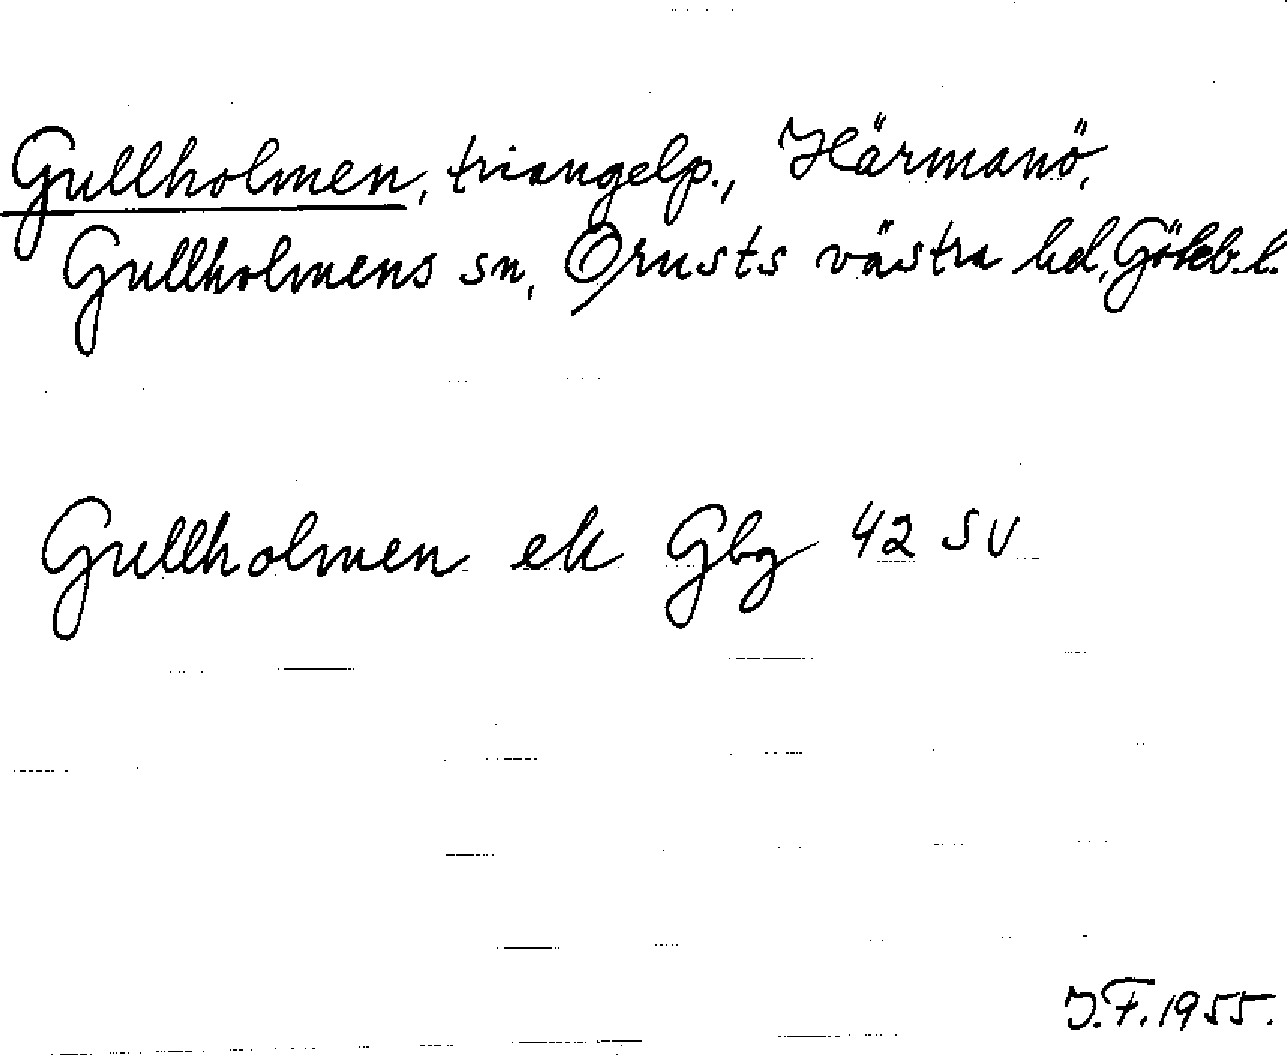 Gullholmen, triangelp., Härmanö,
Gullholmens sn, Orusts västra hd, Göteb. l.
Gullholmen ek Gbg 42 SV
J.F. 1955.